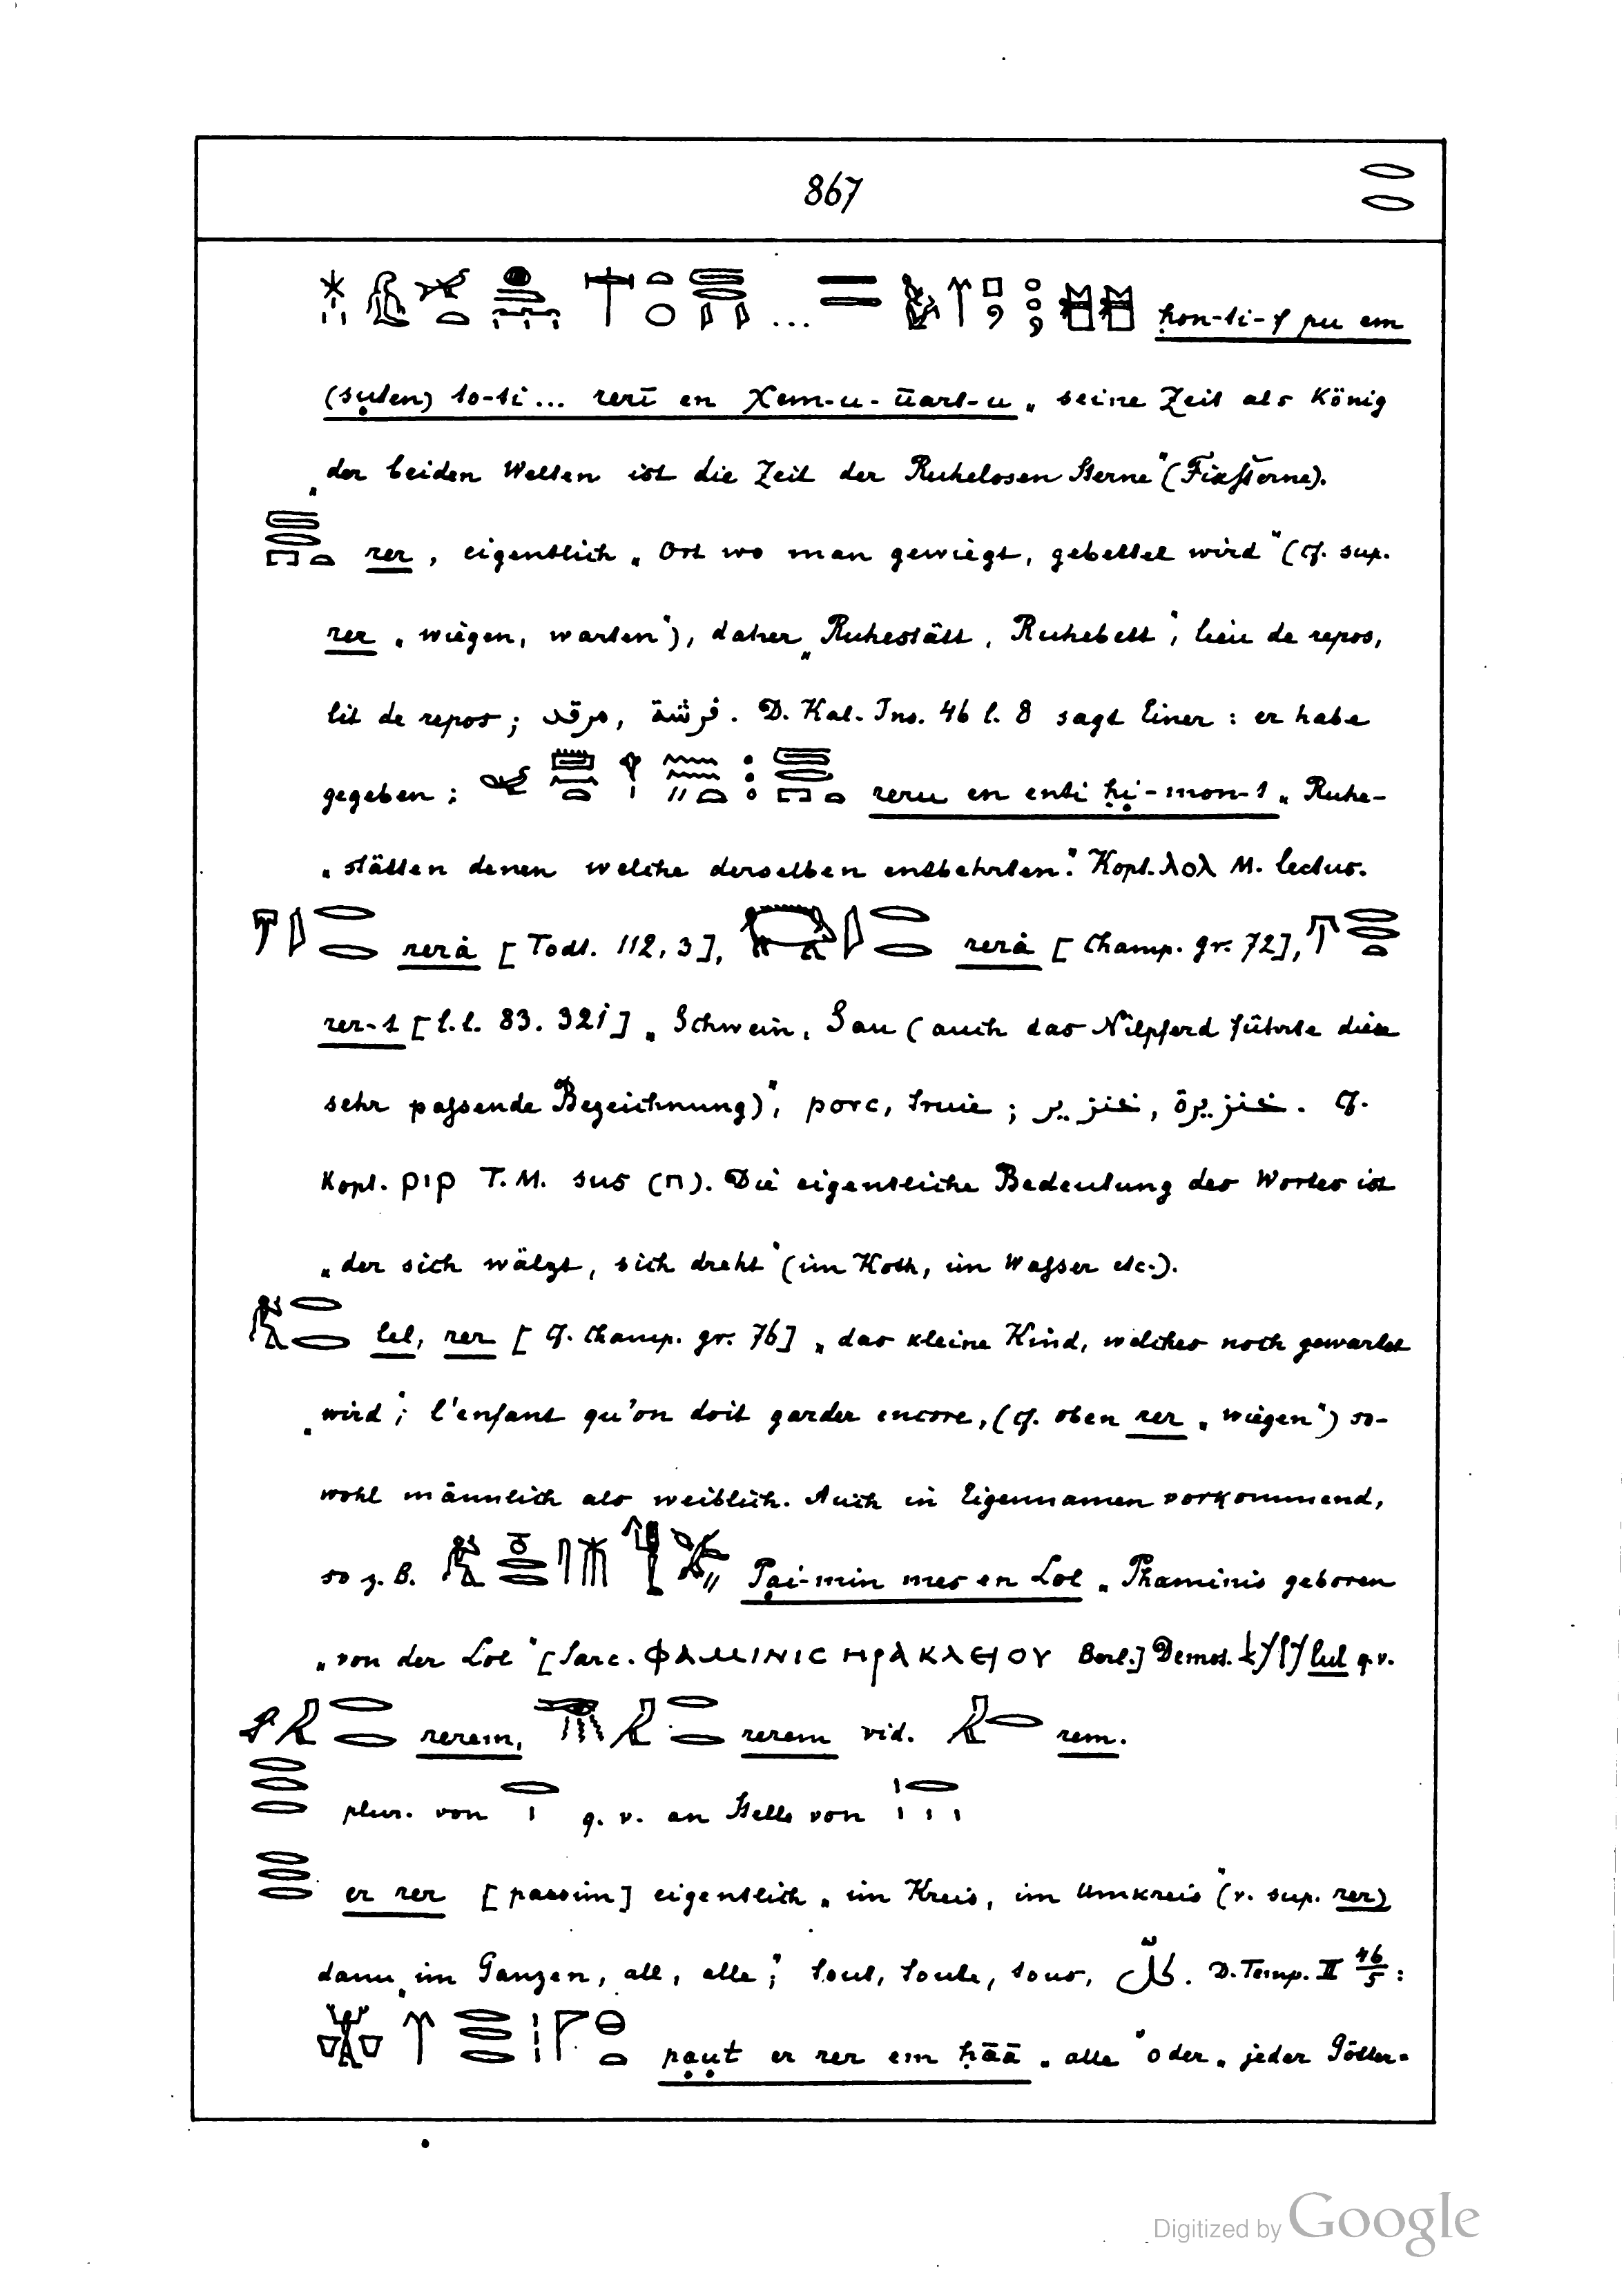 867
ḥon-ti-f pu em
(suten) to-ti... rerī en χem-u-ūart-u „seine Zeit als König
„der beiden Welten ist die Zeit der Ruhelosen Sterne" (Fixsterne).
rer, eigentlich „Ort wo man gewiegt, gebettet wird" (cf. sup.
rer „wiegen, warten"), daher „Ruhestätt, Ruhebett", lieu de repos,
lit de repos; مرقد, فرشة. D. Kal. Ins. 46 l. 8 sagt Einer: er habe
gegeben: reru en enti ḥi-mon-t „Ruhe-
„stätten denen welche derselben entbehrten". Kopt. λολ M. lectus.
rerȧ [Todt. 112, 3], rerȧ [Champ. gr. 72],
rer-t [l.l. 83. 321] „Schwein, Sau (auch das Nilpferd führte diese
sehr paſsende Bezeichnung)", porc, truie; خنزير, خنزيرة. cf.
Kopt. ριρ T. M. sus (π). Die eigentliche Bedeutung des Wortes ist
„der sich wälzt, sich dreht" (im Koth, im Waſser etc.).
lel, rer [cf. Champ. gr. 76] „das kleine Kind, welches noch gewartet
„wird"; l'enfant qu'on doit garder encore, (cf. oben rer „wiegen") so-
wohl männlich als weiblich. Auch in Eigennamen vorkommend,
so z. B. Pai-min mes en Lol „Phaminis geboren
„von der Lol" [Sarc. ΦΑΜΙΝΙC ΗΡΑΚΛΗΟΥ Berl.] Demot. lul q.v.
rerem, rerem vid. rem.
plur. von q. v. an Stelle von
er rer [passim] eigentlich „im Kreis, im Umkreis" (v. sup. rer)
dann „im Ganzen, all, alle"; tout, toute, tous, كلّ. D. Temp. II 46/5:
paut er rer em ḥāā „alle" oder „jeder Götter-
Digitized by Google